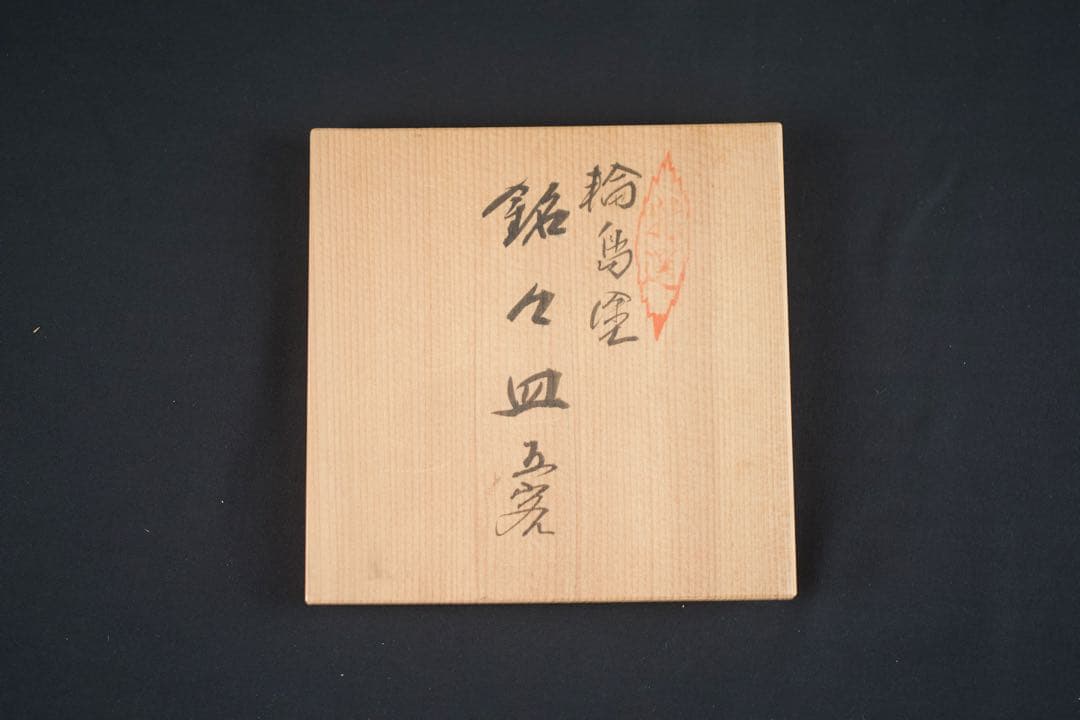 輪島塗
銘々皿五客